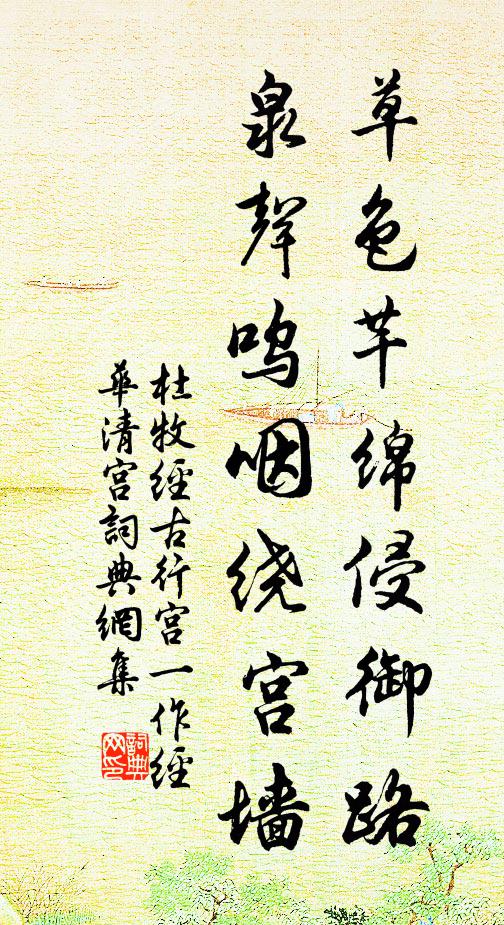 草色芊绵侵御路
泉聲鸣咽绕宫墙
杜牧經古行宫一作經
華清宫詞典網集
詞典
网印